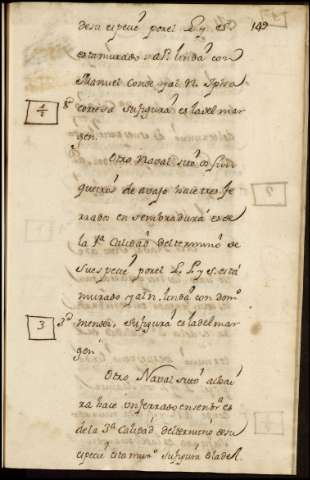 149
desu especie por el L y es
esta murado y al N. linda con
Manuel Conde y al N. Spira
4/4 8º cortesa su figura es la del mar
gen.
Otro Naval sito
queiros de avajo hace tres fe
rrados en sembradura es de
la 1ª Calidad del termino de
su especie por el L. y P. está
murado y al N. linda con domº
3 3º mendei, su figura es la del mar
gen.
Otro Naval sito
ra hace un ferrado en sembrª es
de la 3ª Calidad del termino de su
especie esta murº su figura es la del